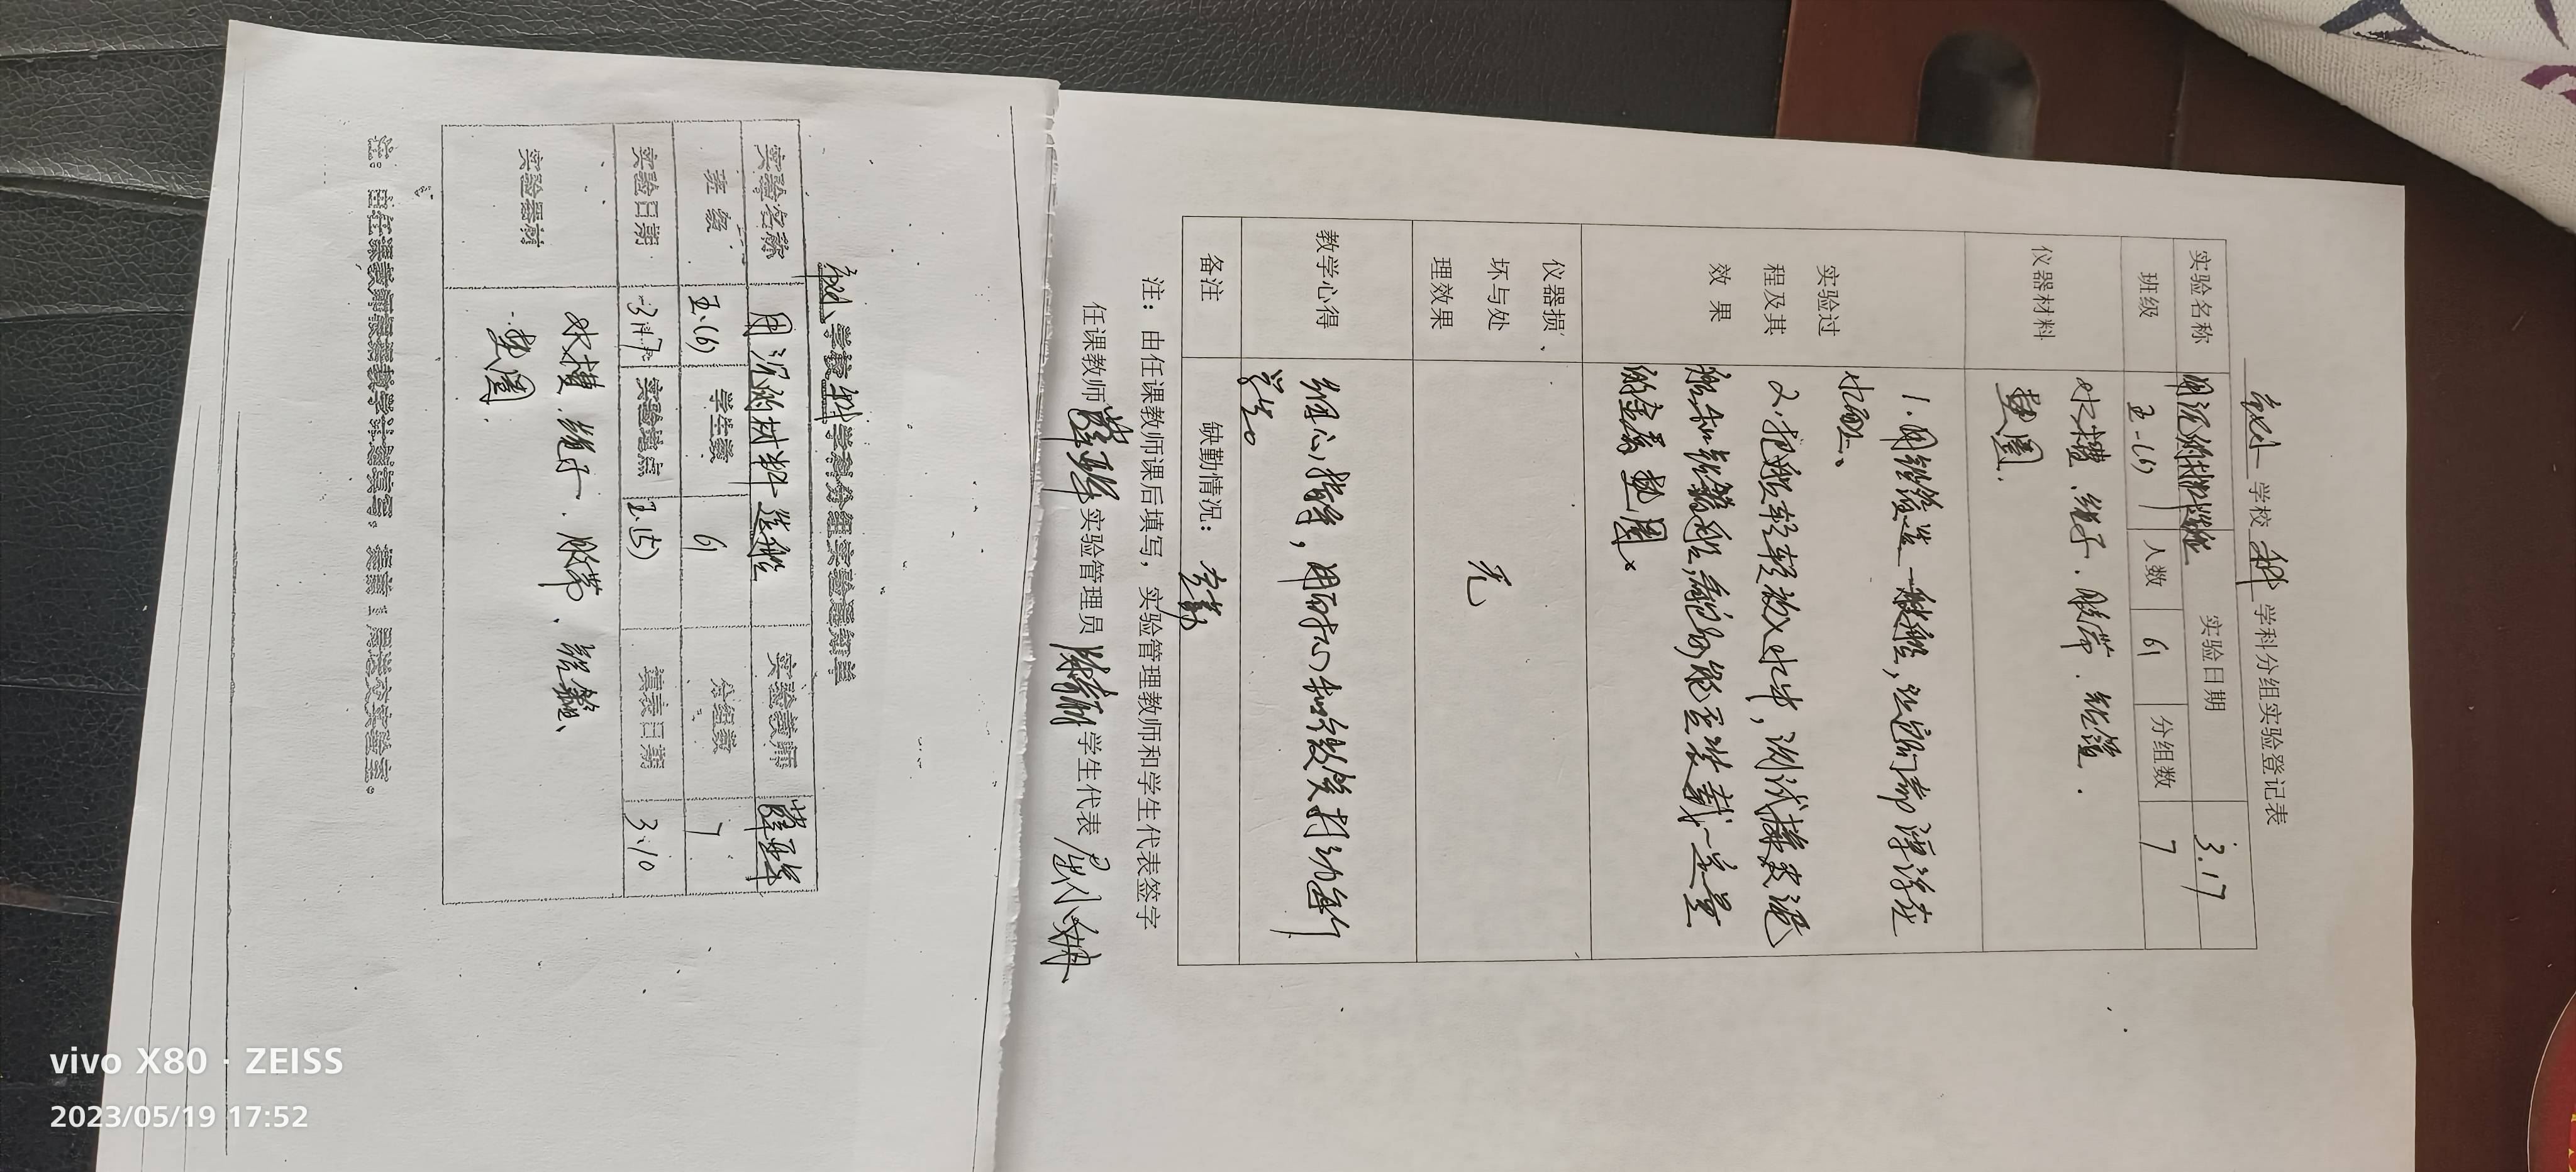 学校 科 学科分组实验登记表
实验名称 用沉的材料造船 实验日期 3.17
班级 五·(6) 人数 61 分组数 7
仪器材料 水槽、绳子、胶带、铝箔、
垫圈.
实验过程及其效果 1.用铝箔造一艘船,让它们都漂浮在
水面上、
2.把船轻轻放入水中,测试橡皮泥
船和铝箔船,看它们能否装载一定量
的金属垫圈。
仪器损坏与处理效果 无
教学心得 细心指导,用耐心和微笑打动每个
学生。
备注 缺勤情况: 全勤
注: 由任课教师课后填写, 实验管理教师和学生代表签字
任课教师 实验管理员 学生代表
学校 科 学科分组实验通知单
实验名称 用沉的材料造船 实验教师
班 级 五.(6) 学生数 61 分组数 7
实验日期 3月17 实验地点 五.(5) 填表日期 3.10
实验器材 水槽、绳子、胶带、铝箔、
垫圈.
注: 由任课教师根据教学计划填写, 提前1周送交实验室.
vivo X80 · ZEISS
2023/05/19 17:52